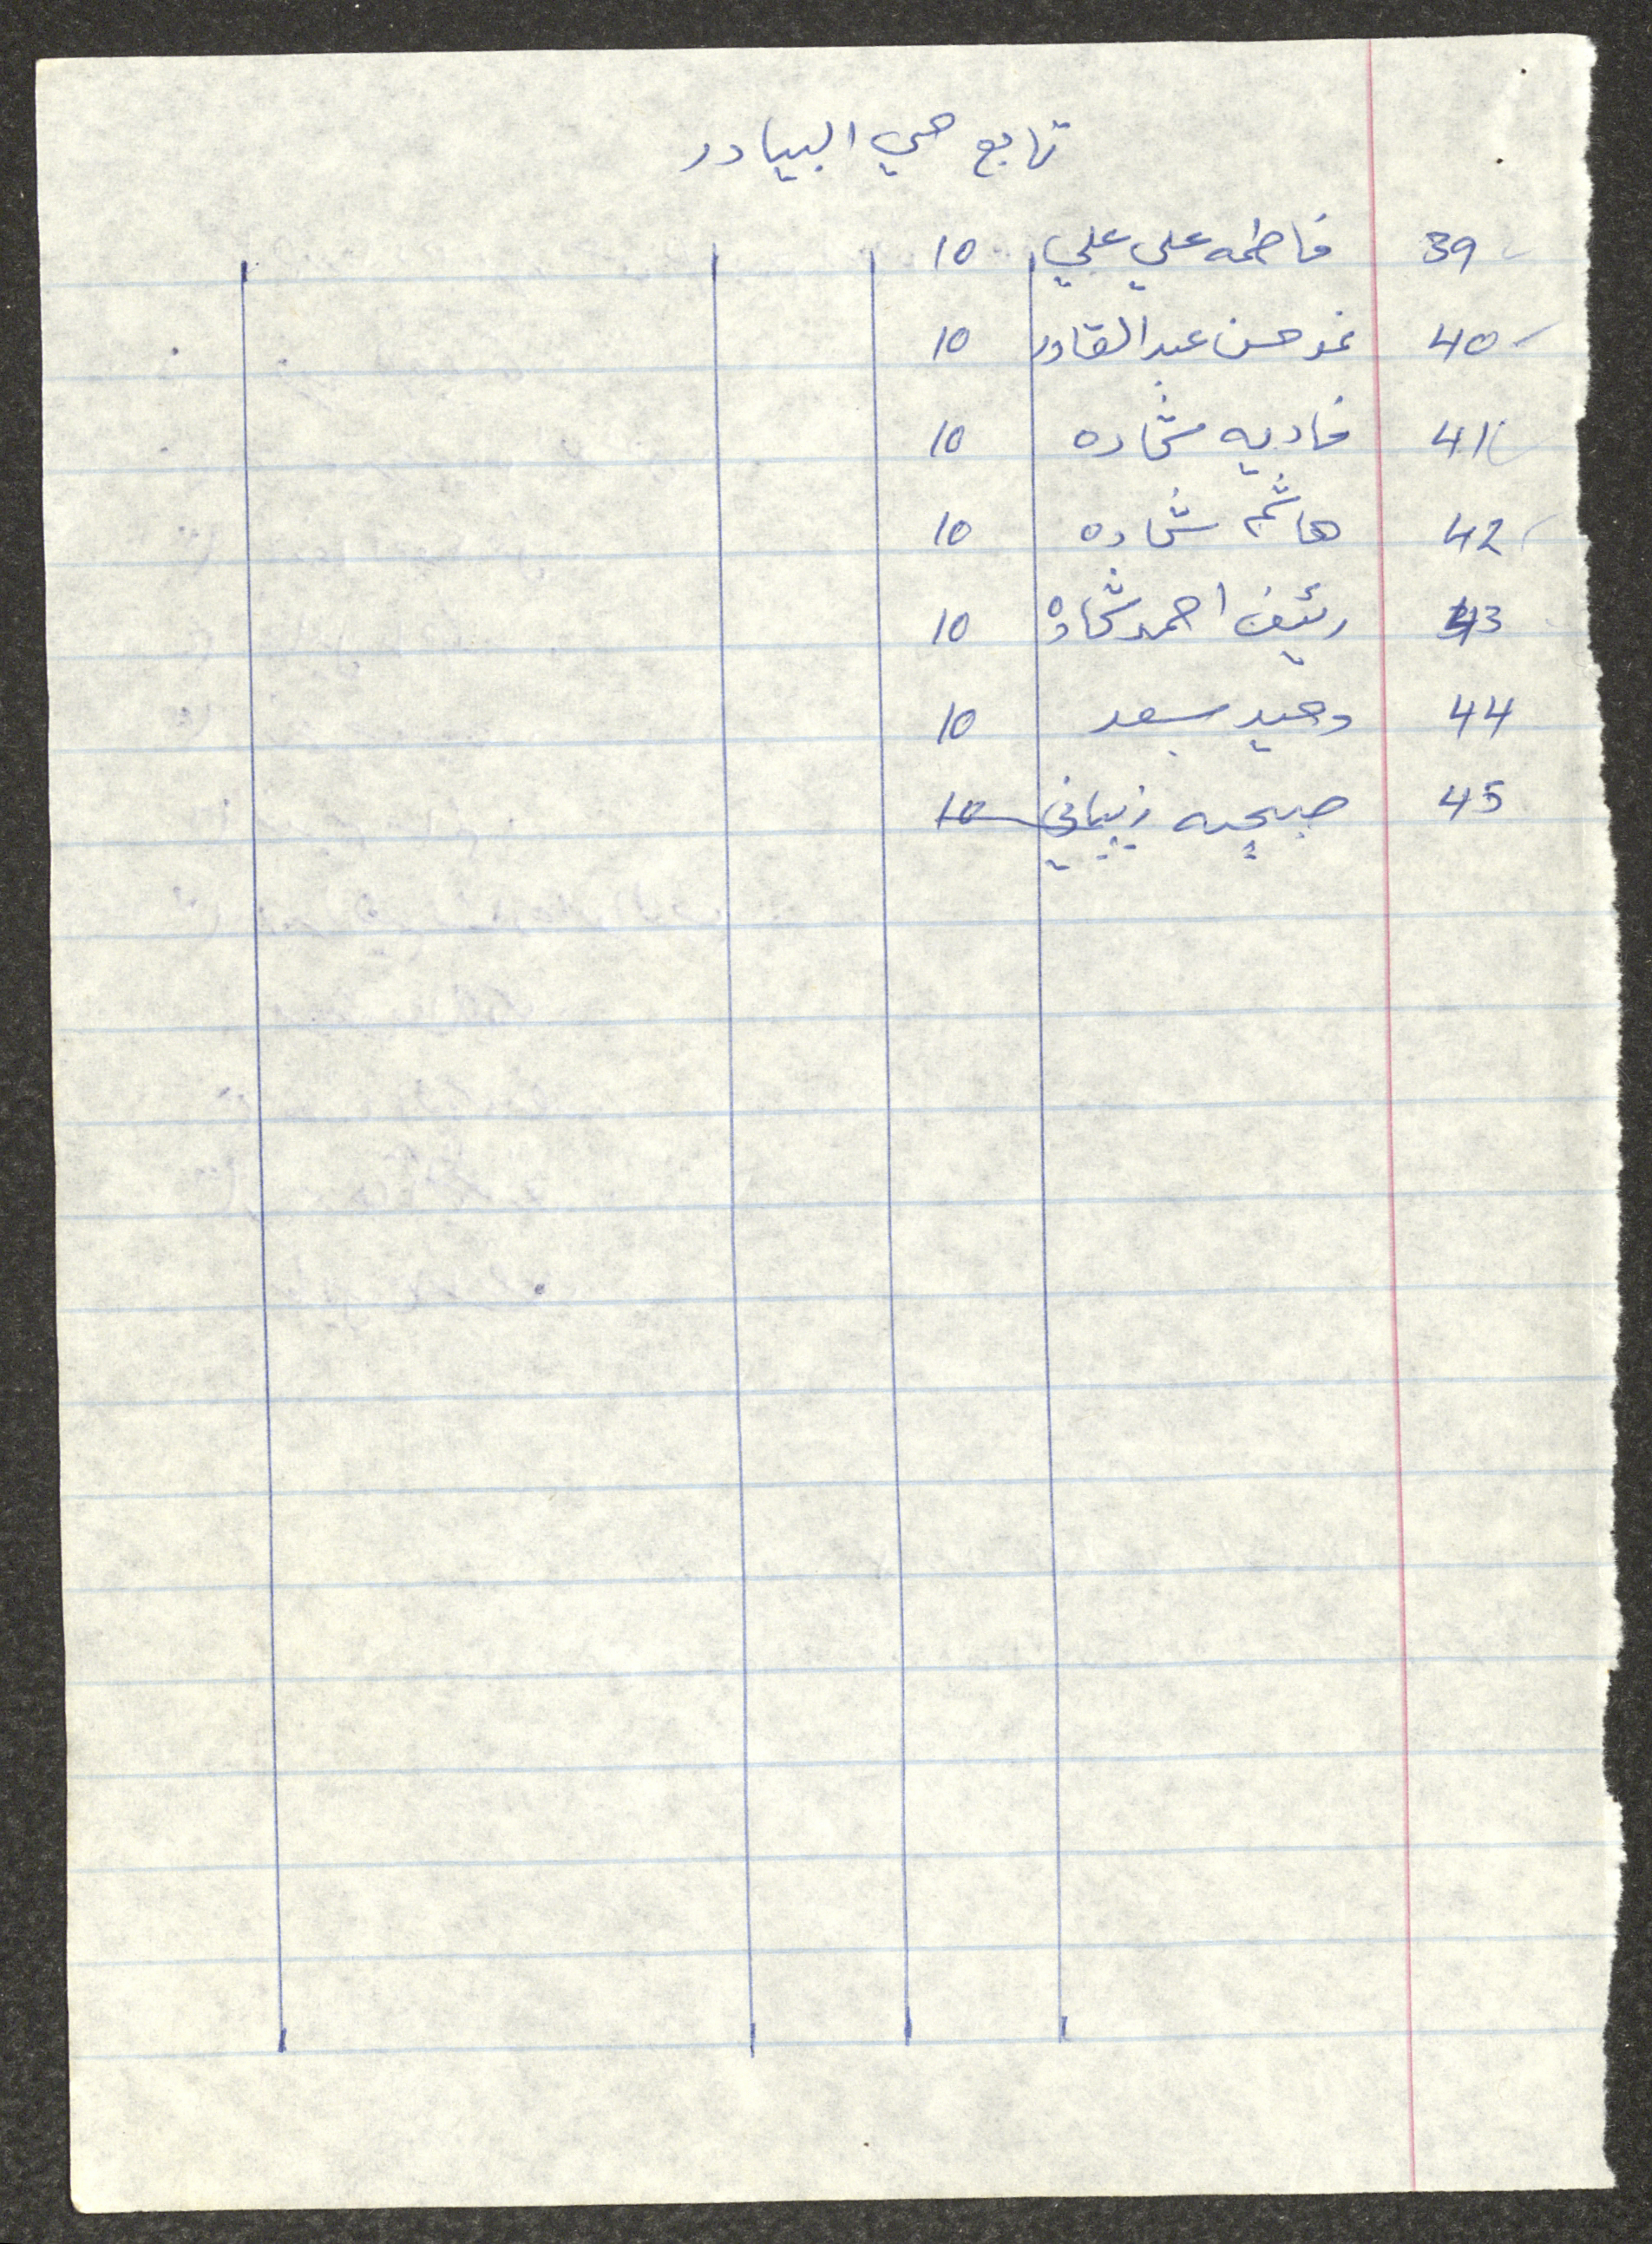 تابع حي البيادر
39 فاطمه علي علي 10
40 حسن عبد القادر 10
41 فاديه شحاده 10
42 هاشم شحاده 10
43 رئيف احمد شحاده 10
44 وحيد سعد 10
45 صبحيه 10